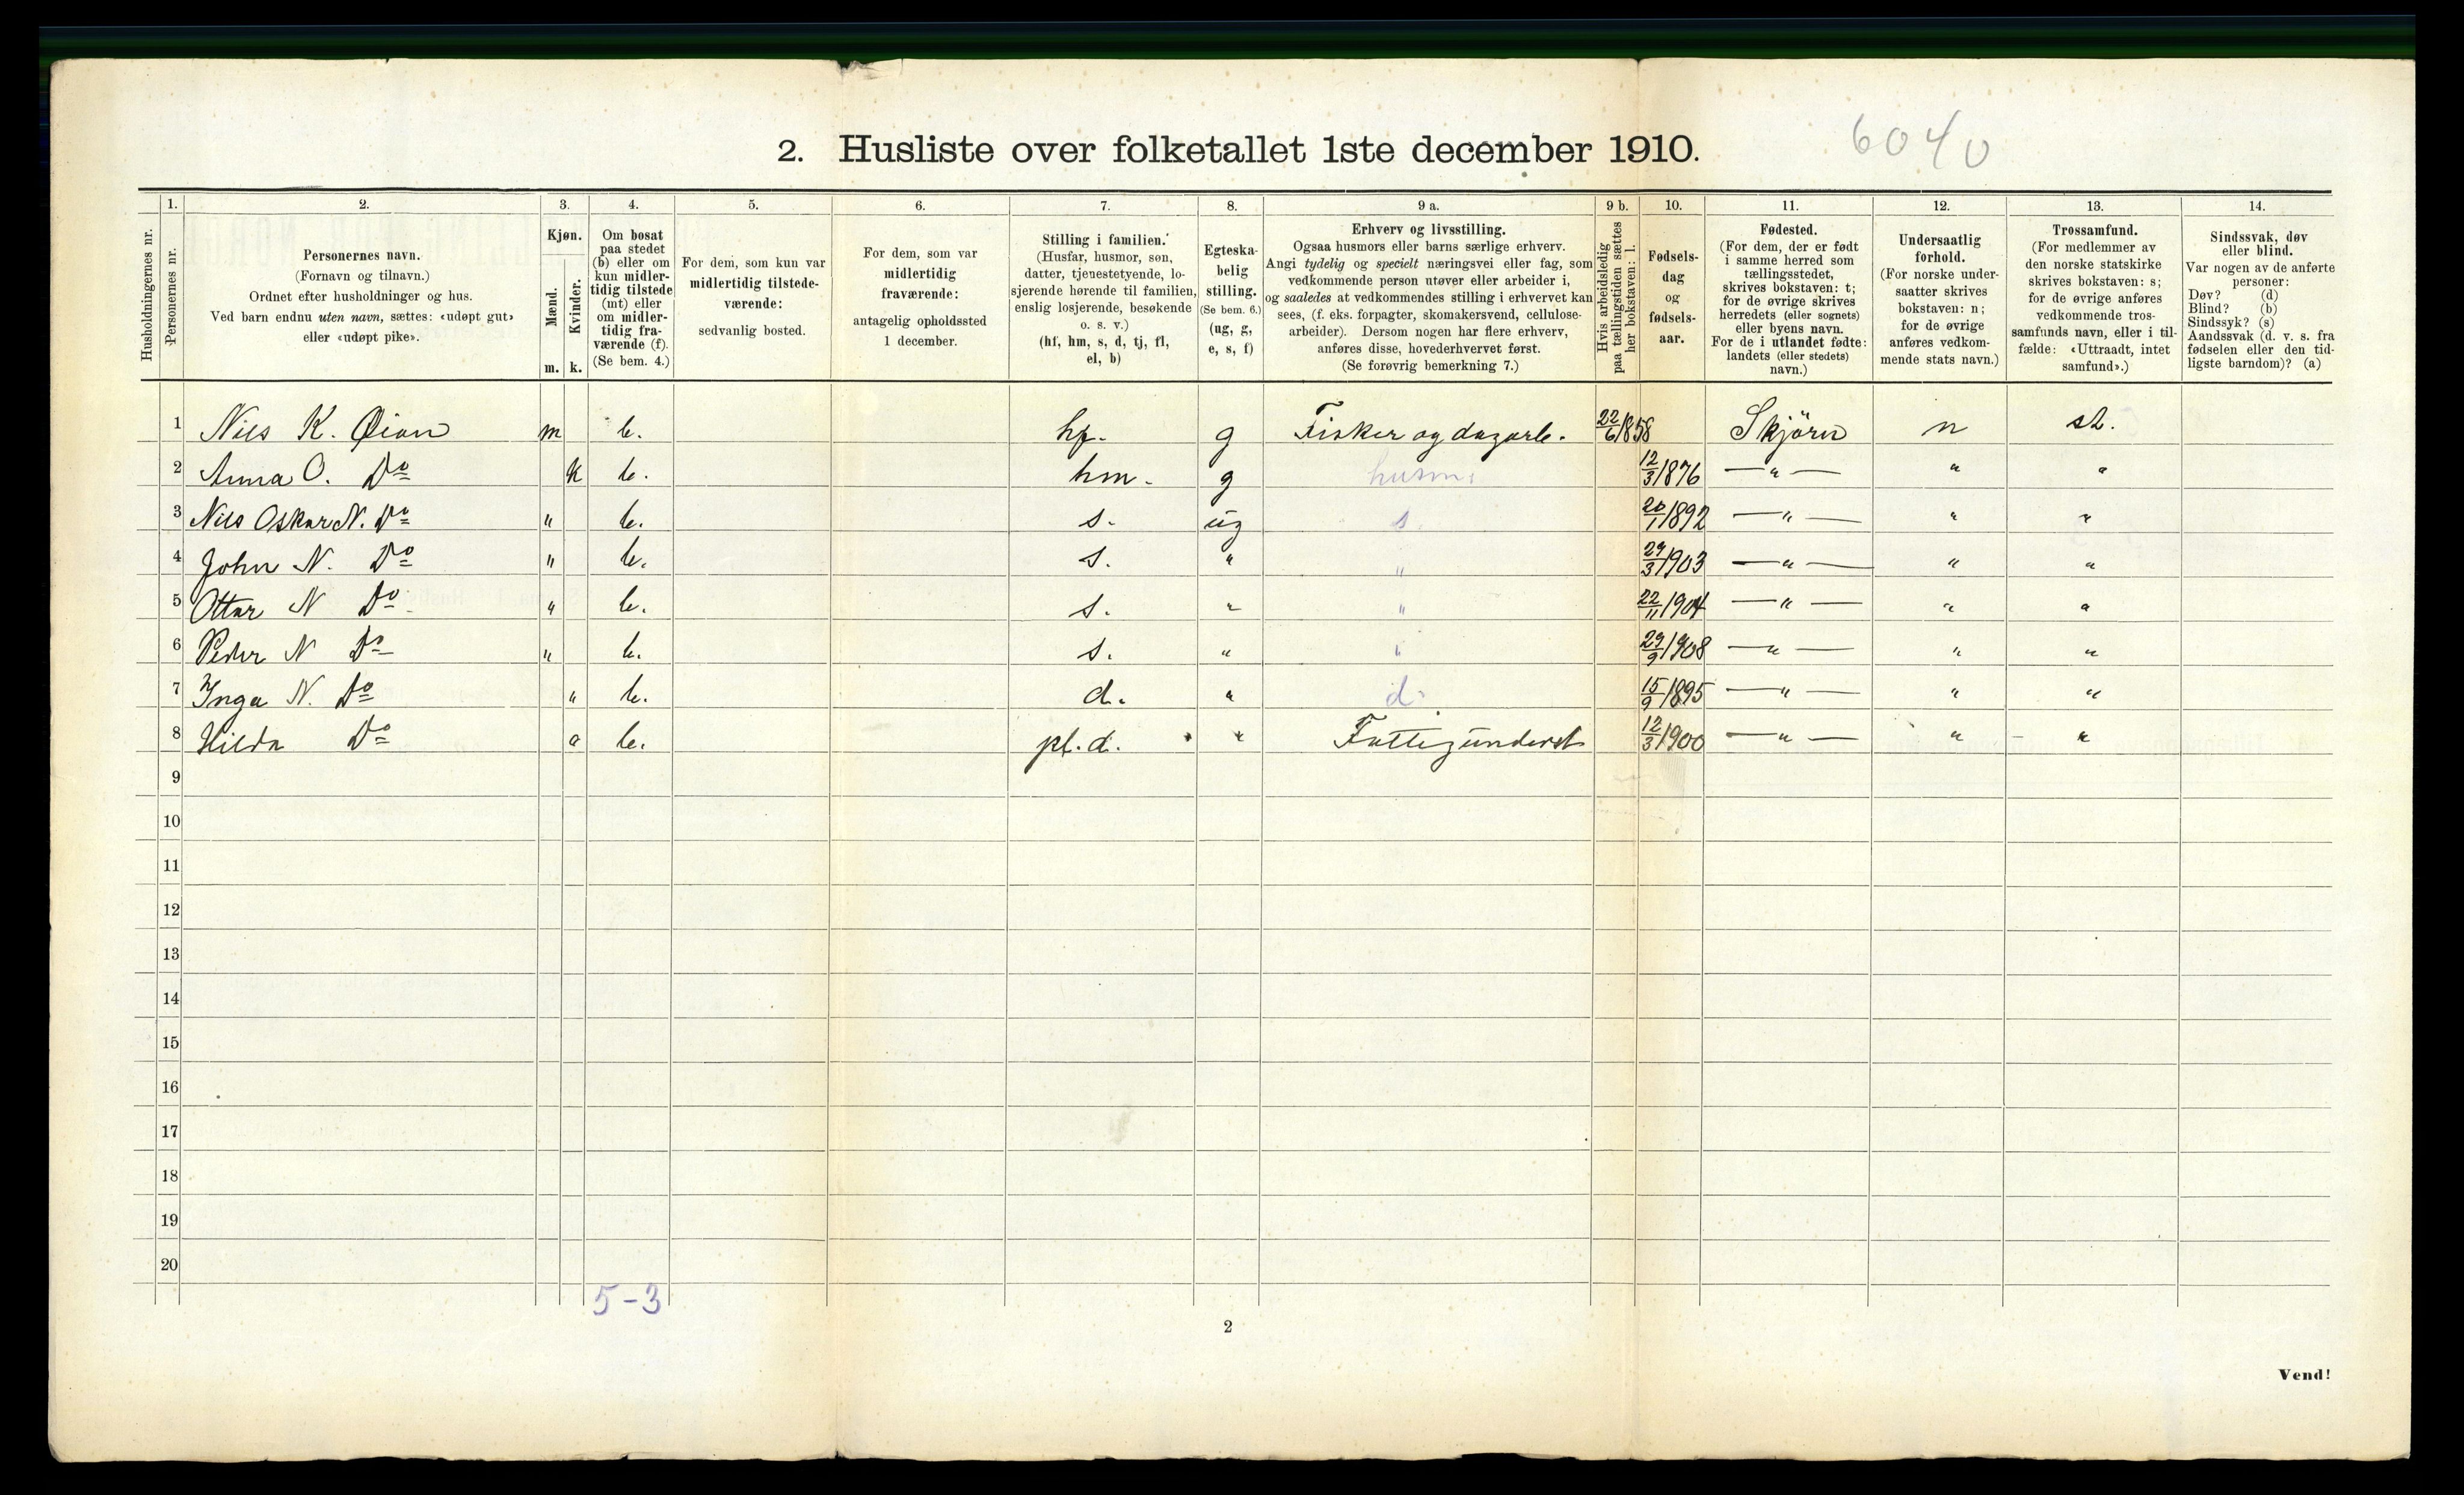 6040
2. Husliste over folketallet 1ste december 1910.
Husholdningernes nr.
1. Personernes nr.
2. Personernes navn. (Fornavn og tilnavn.) Ordnet efter husholdninger og hus. Ved barn endnu uten navn, sættes: «udøpt gut» eller «udøpt pike».
3. Kjøn. Mænd. m. Kvinder. k.
4. Om bosat paa stedet (b) eller om kun midlertidig tilstede (mt) eller om midlertidig fraværende (f). (Se bem. 4.)
5. For dem, som kun var midlertidig tilstedeværende: sedvanlig bosted.
6. For dem, som var midlertidig fraværende: antagelig opholdssted 1 december.
7. Stilling i familien. (Husfar, husmor, søn, datter, tjenestetyende, losjerende hørende til familien, enslig losjerende, besøkende o. s. v.) (hf, hm, s, d, tj, fl, el, b)
8. Egteskabelig stilling. (Se bem. 6.) (ug, g, e, s, f)
9 a. Erhverv og livsstilling. Ogsaa husmors eller barns særlige erhverv. Angi tydelig og specielt næringsvei eller fag, som vedkommende person utøver eller arbeider i, og saaledes at vedkommendes stilling i erhvervet kan sees, (f. eks. forpagter, skomakersvend, cellulosearbeider). Dersom nogen har flere erhverv, anføres disse, hovederhvervet først. (Se forøvrig bemerkning 7.)
9 b. Hvis arbeidsledig paa tællingstiden sættes her bokstaven: l.
10. Fødselsdag og fødselsaar.
11. Fødested. (For dem, der er født i samme herred som tællingsstedet, skrives bokstaven: t; for de øvrige skrives herredets (eller sognets) eller byens navn. For de i utlandet fødte: landets (eller stedets) navn.)
12. Undersaatlig forhold. (For norske undersaatter skrives bokstaven: n; for de øvrige anføres vedkommende stats navn.)
13. Trossamfund. (For medlemmer av den norske statskirke skrives bokstaven: s; for de øvrige anføres vedkommende trossamfunds navn, eller i tilfælde: «Uttraadt, intet samfund».)
14. Sindssvak, døv eller blind. Var nogen av de anførte personer: Døv? (d) Blind? (b) Sindssyk? (s) Aandssvak (d. v. s. fra fødselen eller den tidligste barndom)? (a)
1 Nils K. Øian m b. hf. g Fisker og dagarb. 22/6 1858 Skjörn n st.
2 Anna O. Do k b. hm. g husm. 12/3 1876 — " — " "
3 Nils Oskar N. Do " b. s. ug s. 20/1 1892 — " — " "
4 John N. Do " b. s. " " 29/3 1903 — " — " "
5 Ottar N Do " b. s. " " 22/11 1904 — " — " "
6 Peder N Do " b. s. " " 29/9 1908 — " — " "
7 Inga N. Do " b. d. " d. 15/9 1895 — " — " "
8 Hilda Do " b. pl. d. " Fattigunderst 12/3 1900 — " — " "
9
10
11
12
13
14
15
16
17
18
19
20
5-3
2
Vend!